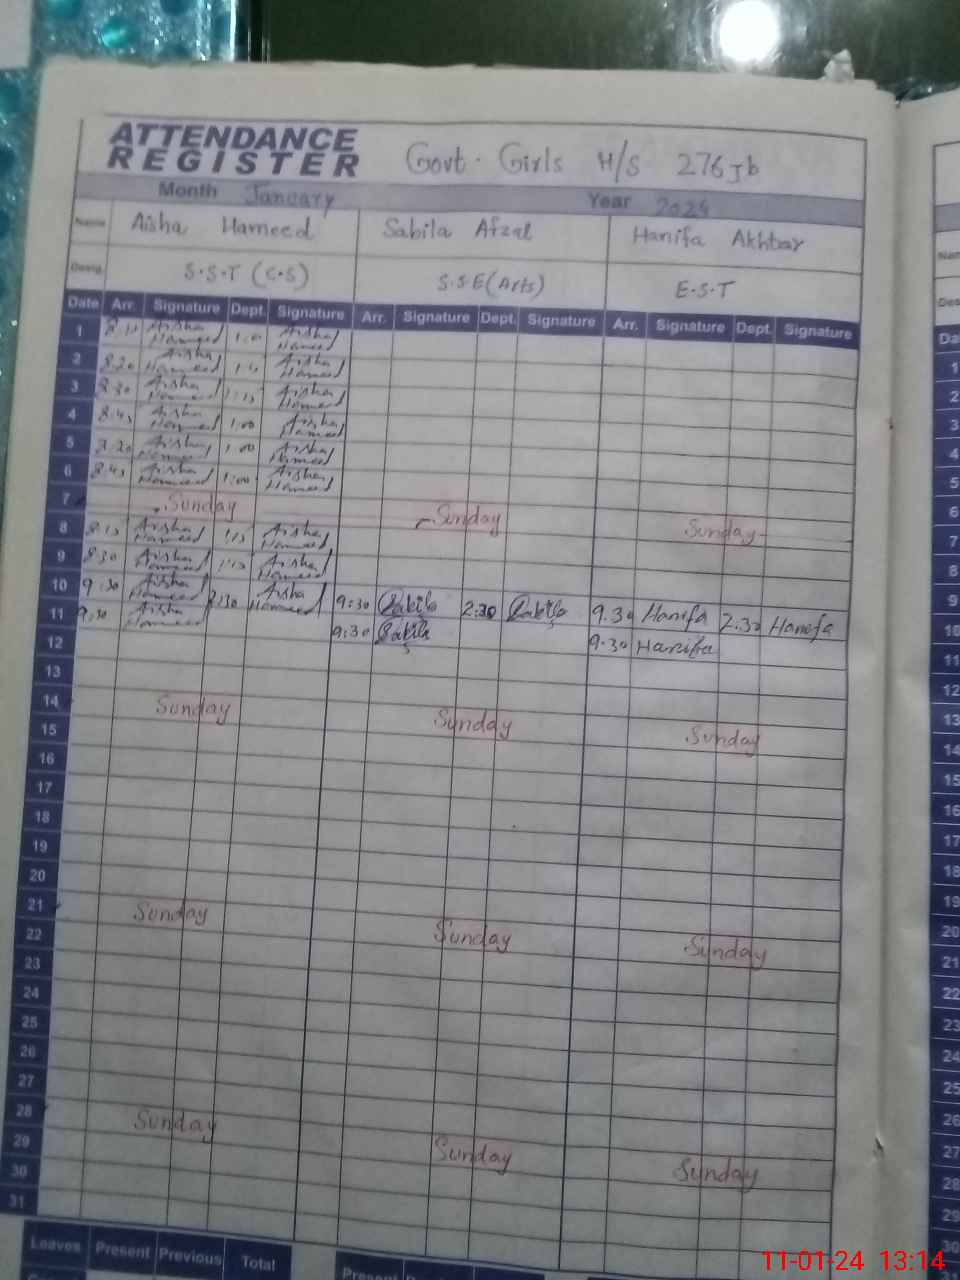 ATTENDANCE REGISTER Govt. Girls H/S 276 Jb
Month January Year 2024
Name Aisha Hameed Sabila Afzal Hanifa Akhtar
Desig. S.S.T (C.S) S.S.E (Arts) E.S.T
Date Arr. Signature Dept. Signature Arr. Signature Dept. Signature Arr. Signature Dept. Signature
1 Aisha Hameed 1:00 Aisha Hameed
2 8:20 Aisha Hameed Aisha Hameed
3 8:30 Aisha Hameed 1:15 Aisha Hameed
4 8:45 Aisha Hameed 1:00 Aisha Hameed
5 Aisha Hameed 1:00 Aisha Hameed
6 8:45 Aisha Hameed 1:00 Aisha Hameed
7 Sunday Sunday Sunday
8 8:15 Aisha Hameed 1:15 Aisha Hameed
9 8:30 Aisha Hameed 1:15 Aisha Hameed
10 9:30 Aisha Hameed 2:30 Aisha Hameed 9:30 Sabila 2:30 Sabila 9.30 Hanifa 2.30 Hanifa
11 9:30 Aisha Hameed 9:30 Sabila 9.30 Hanifa
12
13
14 Sunday Sunday Sunday
15
16
17
18
19
20
21 Sunday Sunday Sunday
22
23
24
25
26
27
28 Sunday Sunday Sunday
29
30
31
Leaves Present Previous Total Present
11-01-24 13:14